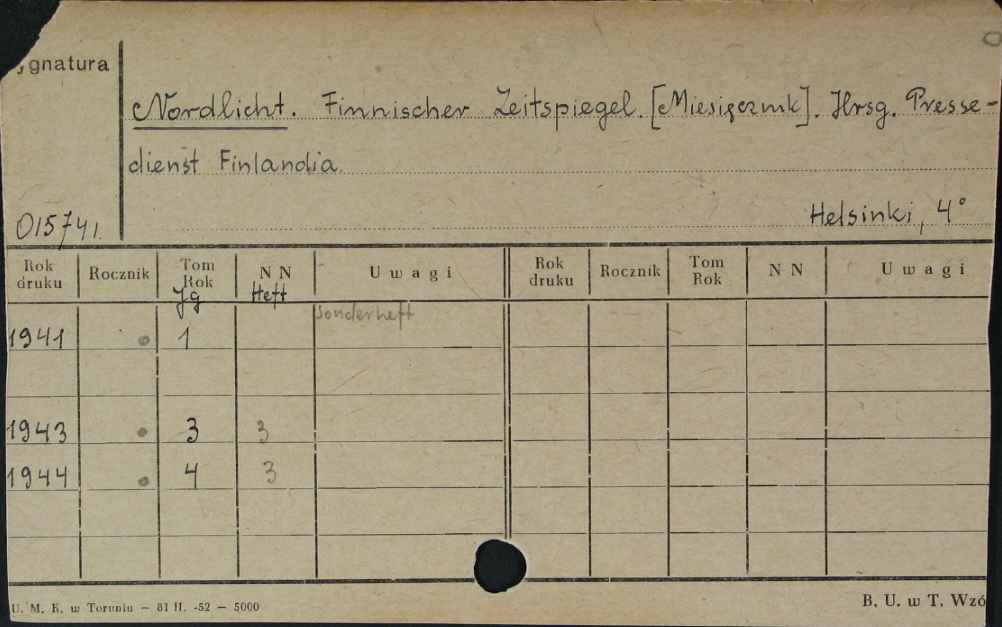 ygnatura
Nordlicht. Finnischer Zeitspiegel. [Miesięcznik]. Hrsg. Presse-
dienst Finlandia.
015741.
Helsinki, 4°
Rok druku Rocznik Tom Rok Jg NN Heft Uwagi Rok druku Rocznik Tom Rok NN Uwagi
1941 1 Sonderheft
1943 3 3
1944 4 3
U. M. K. w Toruniu — 81 II. -52 — 5000
B. U. w T. Wzó